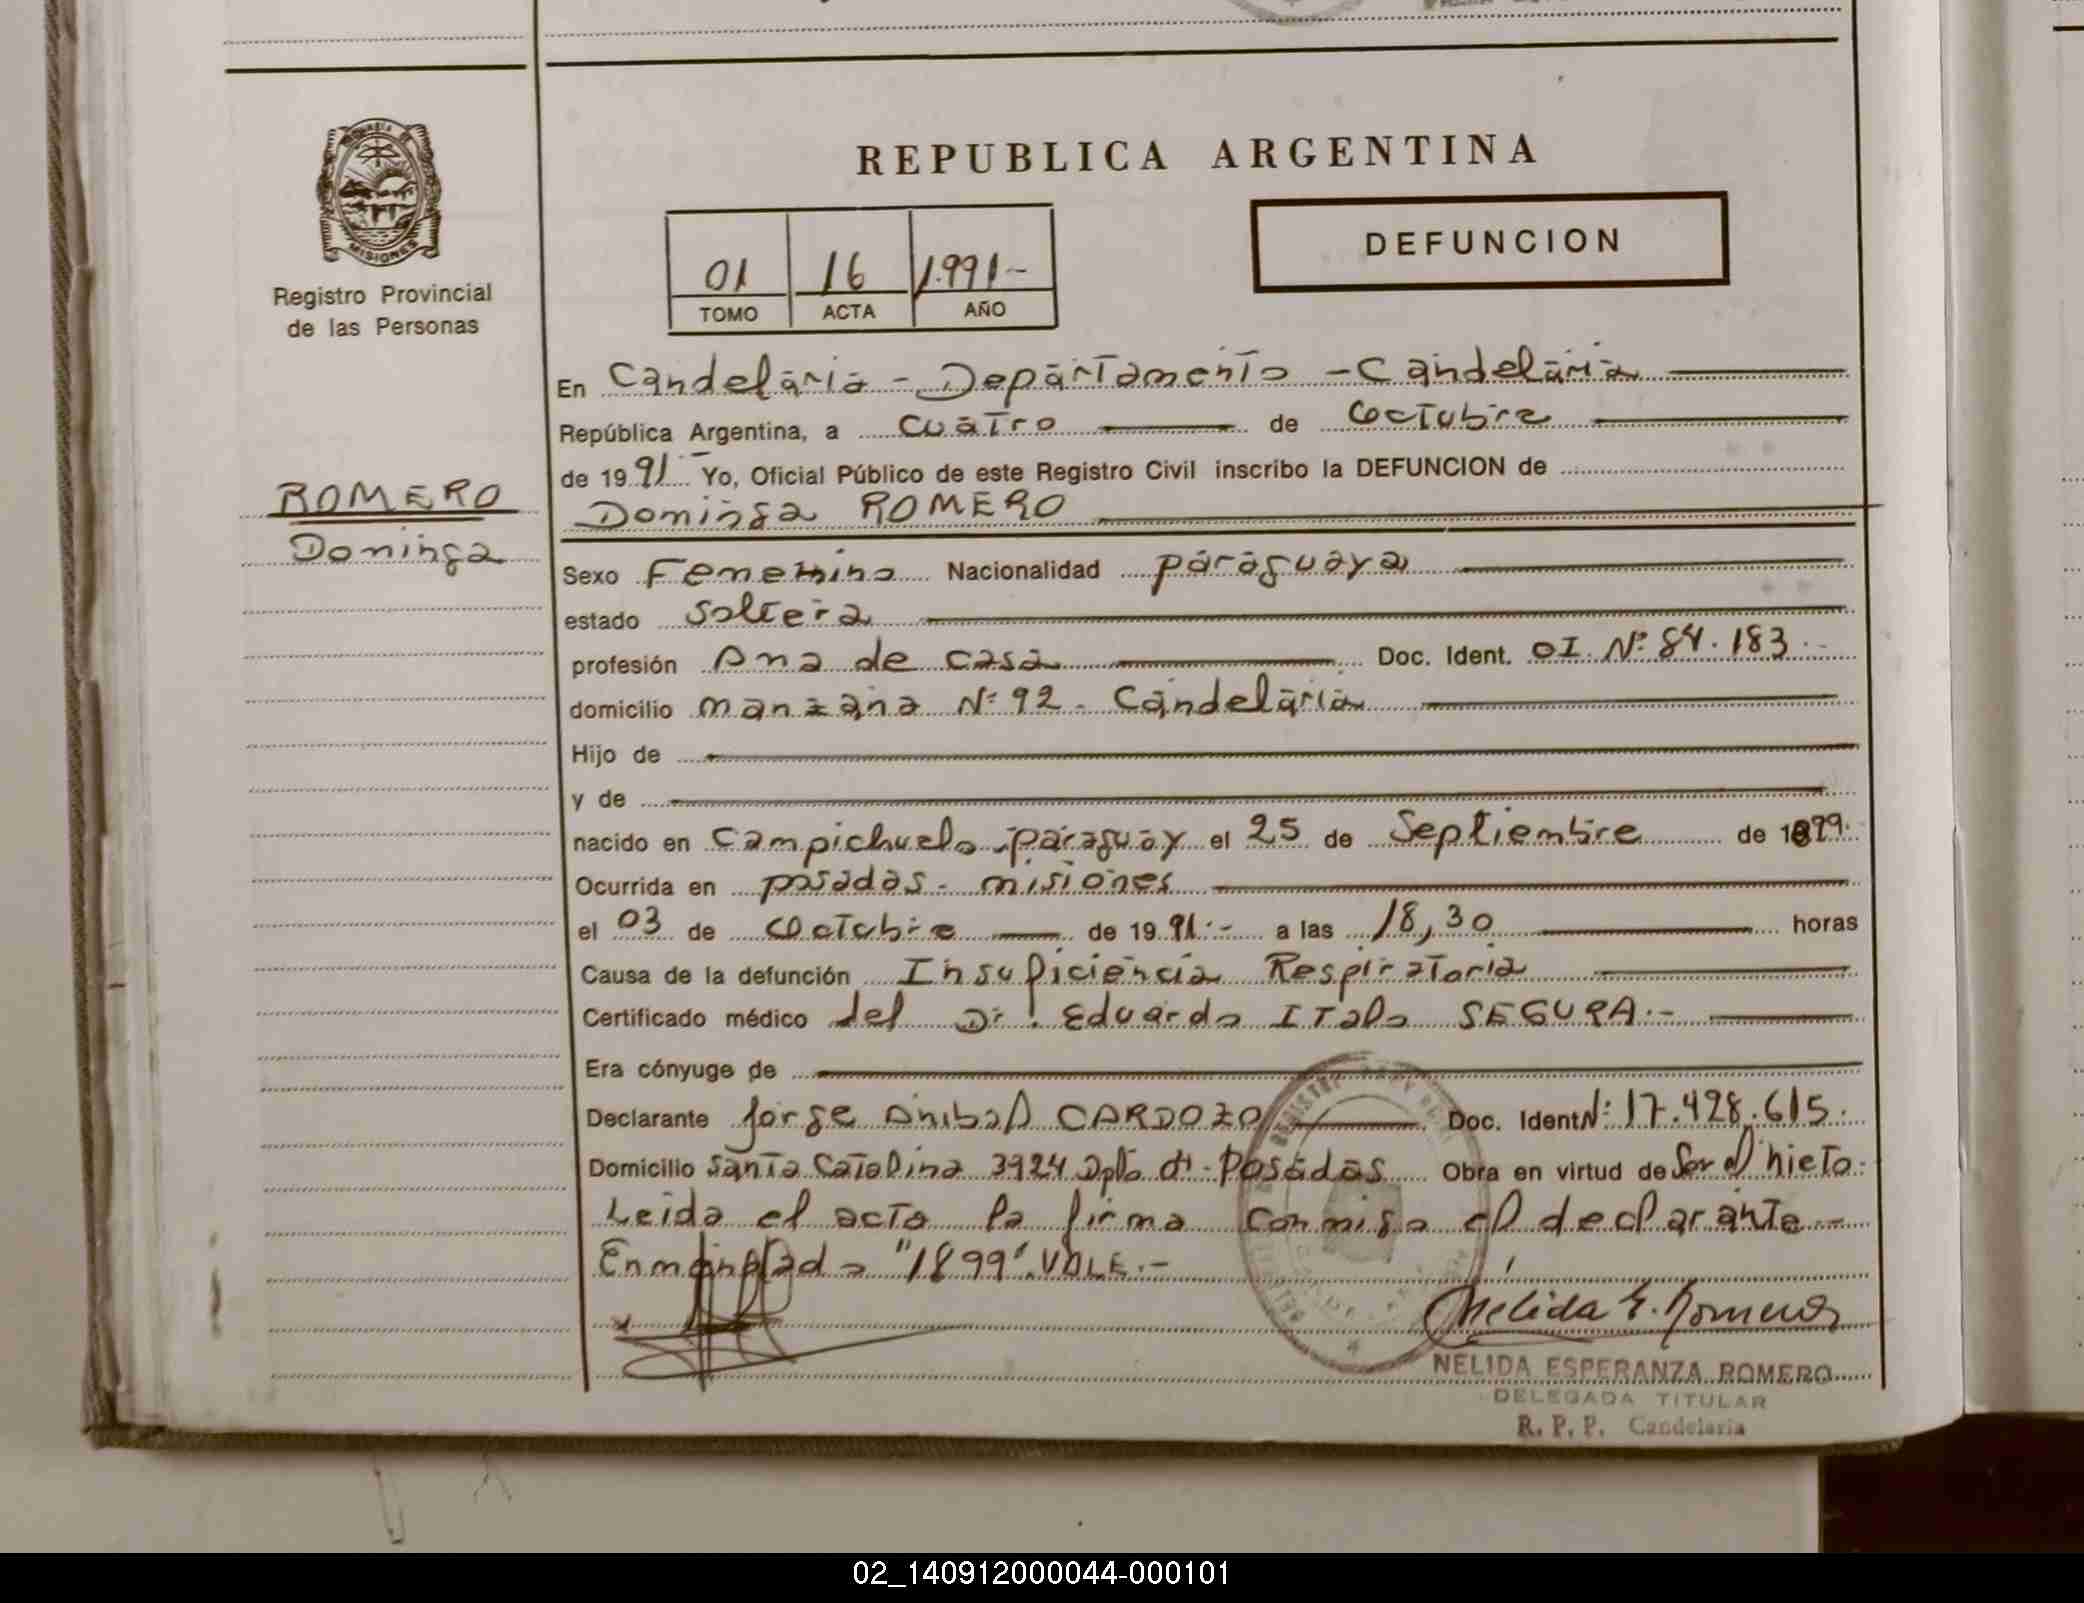 REPUBLICA ARGENTINA
MISIONES
Registro Provincial
de las Personas
DEFUNCION
01 16 1.991-
TOMO ACTA AÑO
ROMERO
Dominga
En Candelaria - Departamento - Candelaria
República Argentina, a cuatro de Octubre
de 1991 Yo, Oficial Público de este Registro Civil inscribo la DEFUNCION de
Dominga ROMERO
Sexo Femenino Nacionalidad paraguaya
estado Soltera
profesión Ama de casa Doc. Ident. OI. Nº 84.183.-
domicilio manzana Nº 92 - Candelaria
Hijo de
y de
nacido en Campichuelo - paraguay el 25 de Septiembre de 1899.
Ocurrida en posadas - misiones
el 03 de Octubre de 1991.- a las 18,30 horas
Causa de la defunción Insuficiencia Respiratoria
Certificado médico del Dr. Eduardo Italo SEGURA.-
Era cónyuge de
Declarante Jorge Anibal CARDOZO Doc. Ident Nº 17.428.615.
Domicilio Santa Catalina 3924 Dpto - Posadas Obra en virtud de Ser el nieto.
Leida el acta la firma conmigo el declarante.-
Enmendado "1899". VALE.-
Nélida E. Romero
NELIDA ESPERANZA ROMERO
DELEGADA TITULAR
R. P. P. Candelaria
02_140912000044-000101